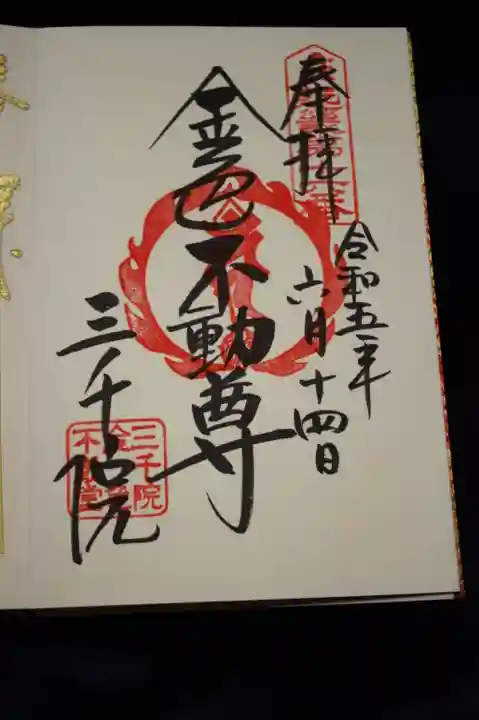 奉拝
令和五年
六月十四日
金色不動尊
三千院
三千院
金色
不動堂